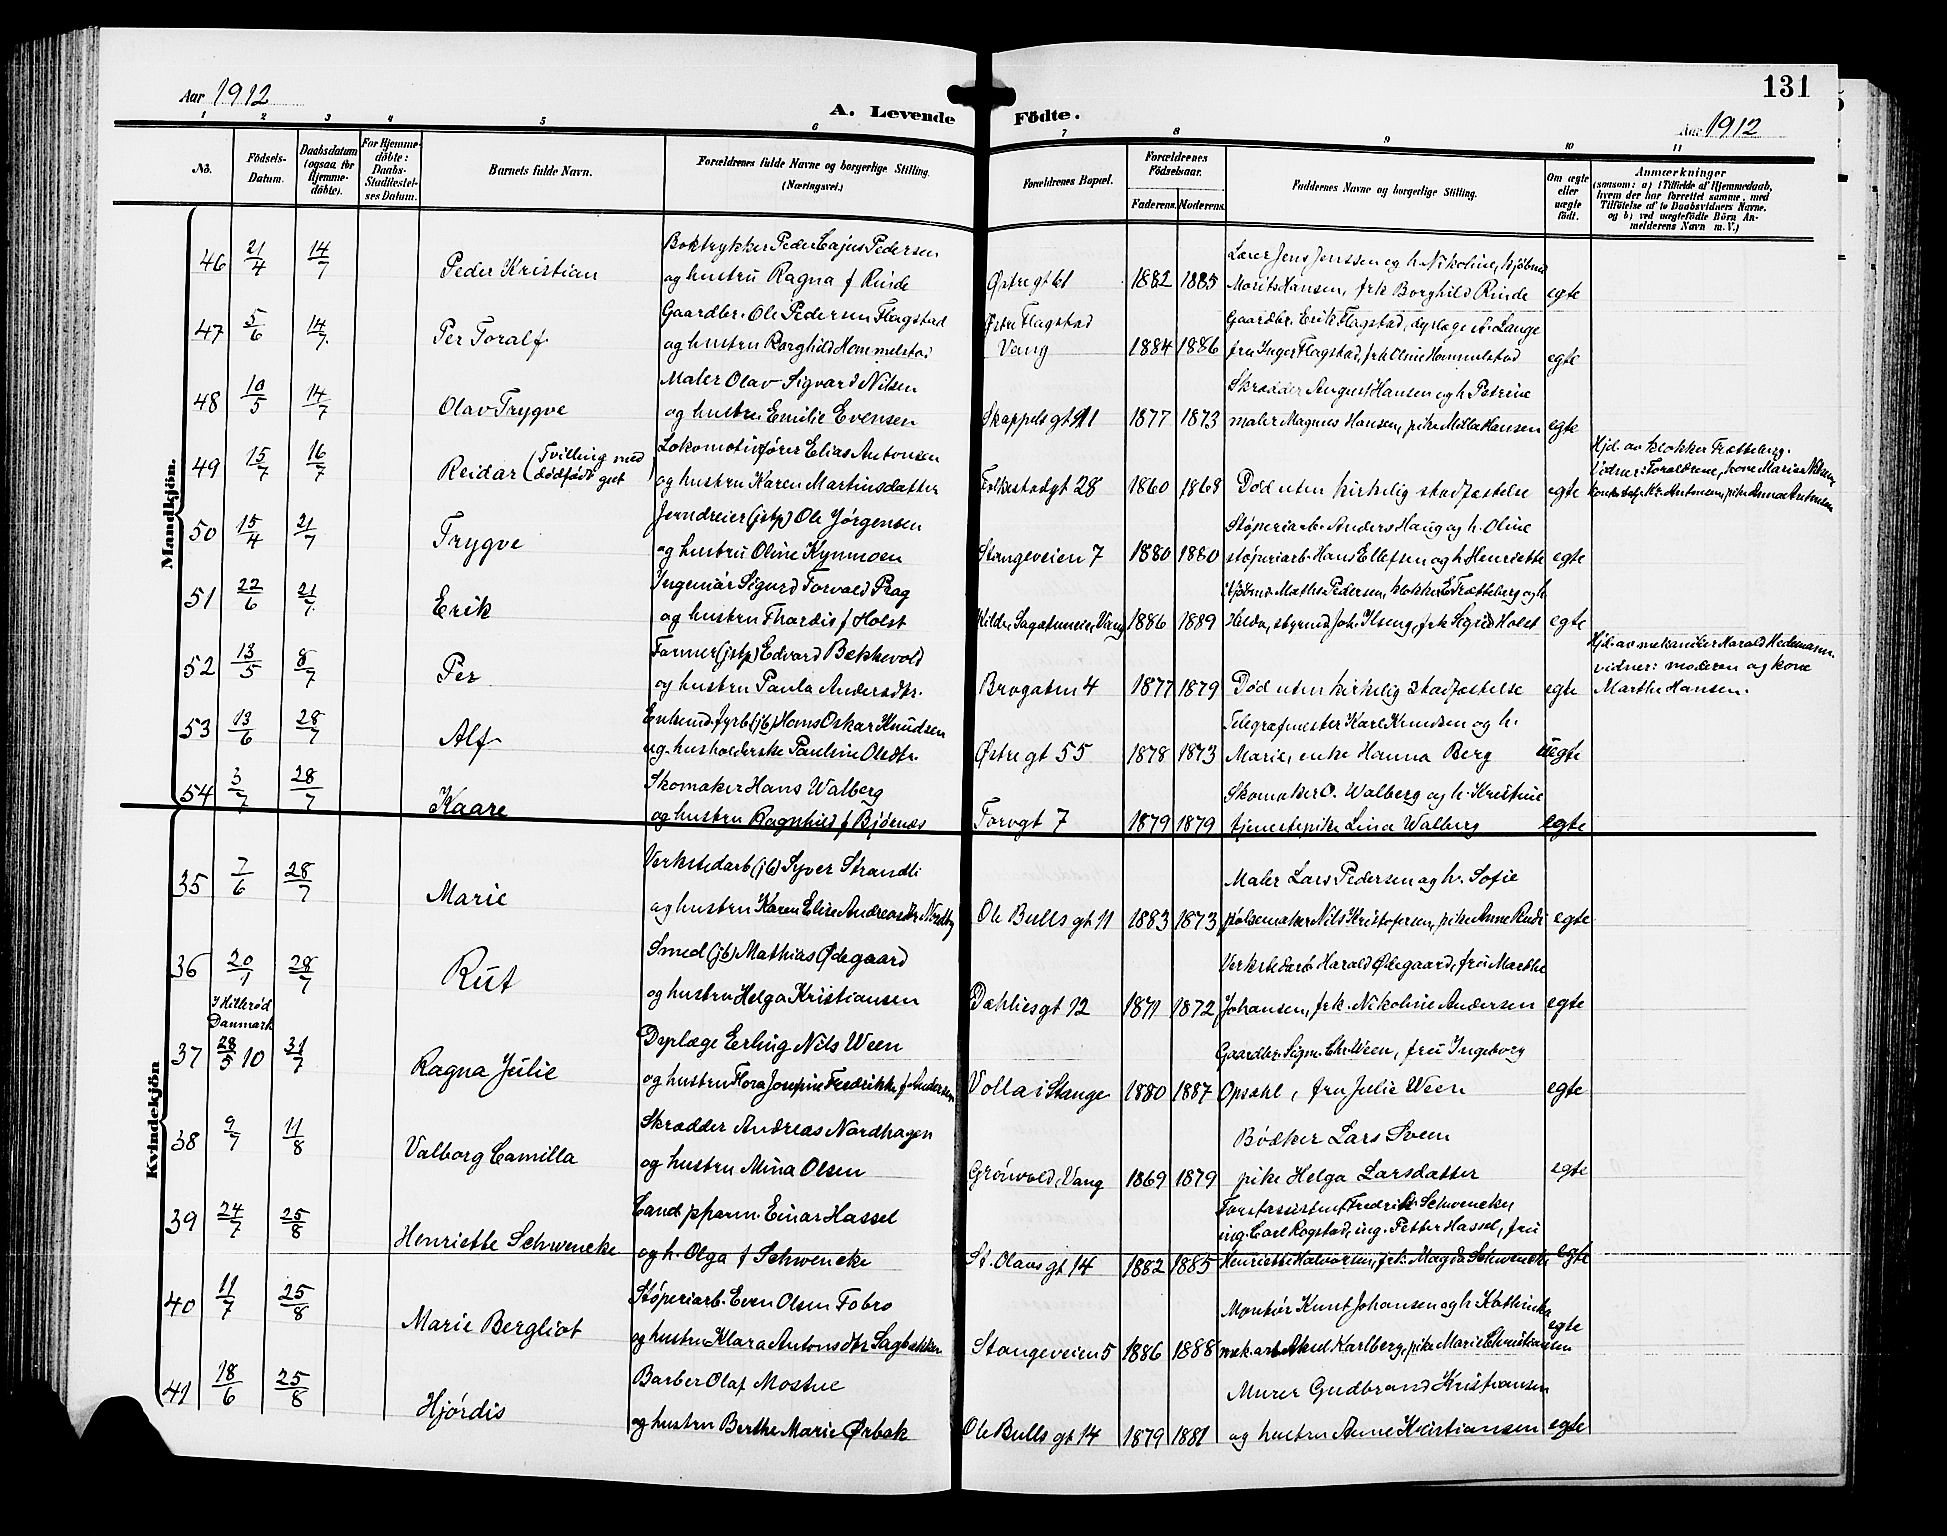 131
Aar 1912
A. Levende Födte.
Aar 1912
1 2 3 4 5 6 7 8 9 10 11
No.
Födsels-Datum.
Daabsdatum (ogsaa for Hjemme-döbte).
For Hjemme-döbte: Daabs-Stadfestel-ses Datum.
Barnets fulde Navn.
Forældrenes fulde Navne og borgerlige Stilling. (Næringsvei.)
Forældrenes Bopæl.
Forældrenes Födselsaar.
Faderens. Moderens.
Faddernes Navne og borgerlige Stilling.
Om ægte eller uægte födt.
Anmærkninger
(saasom: a) i Tilfælde af Hjemmedaab, hvem der har forrettet samme, med Tilföielse af to Daabsvidners Navne, og b) ved uægtefödte Börn An-melderens Navn m. V.)
Mandkjön.
46 21/4 14/7 Peder Kristian
Boktrykker Peder Cajus Pedersen
og hustru Ragna f Rinde
Østregt 61 1882 1885
Lærer Jens Jenssen og h. Nikoline, kjøbmd
Morits Hansen, frk Borghild Rinde egte
47 5/6 14/7 Per Toralf
Gaardbr. Ole Pedersen Flagstad
og hustru Borghild Hommelstad
Østre Flagstad
Vang 1884 1886
Gaardbr. Erik Flagstad, dyrlæge A. Lange
fru Inger Flagstad, frk Oline Hommelstad egte
48 10/5 14/7 Olav Trygve
Maler Olav Sigvard Nilsen
og hustru Emilie Evensen
Skappelsgt 11 1877 1873
Skrædder August Hansen og h Petrine
maler Magnus Hansen, pike Milla Hansen egte
49 15/7 16/7 Reidar (Tvilling med dødfødt gut)
Lokomotivfører Elias Antonsen
og hustru Karen Martinsdatter
Folkestadgt 28 1860 1868
Død uten kirkelig stadfæstelse egte
Hjd. av klokker Trætteberg.
Vidner: Forældrene, kone Marian Nilsen
Kr. Antonsen, pike Anna Antonsen
50 15/4 21/7 Trygve
Jerndreier (jstp) Ole Jørgensen
og hustru Oline Kynmoen
Stangeveien 7 1880 1880
Støperiarb. Anders Haug og h. Oline
støperiarb. Hans Ellefsen og h Henriette egte
51 22/6 21/7 Erik
Ingeniør Sigurd Torvald Prag
og hustru Thordis f Holst
Kilde, Sagatunveien, Vang 1886 1889
Kjøbmd Maths Pedersen, klokker E Trætteberg og h.
Helda, styrmd Joh. Ilseng, frk Sigrid Holst egte
52 13/5 8/7 Per
Former (jstp) Edvard Bekkevold
og hustru Paula Andersdtr.
Brogaten 4 1877 1879
Død uten kirkelig stadfæstelse egte
Hjd. av mekaniker Harald Hedemann.
vidner: moderen og kone
Marthe Hansen.
53 13/6 28/7 Alf
Enkemd. fyrb (jb) Hans Oskar Knudsen
ug. husholderske Pauline Olsdtr.
Østregt 55 1878 1873
Telegrafmester Karl Knudsen og h.
Marie, enke Hanna Berg uegte
54 3/7 28/7 Kaare
Skomaker Hans Walberg
og hustru Ragnhild f Bjørnæs
Torvgt 7 1879 1879
Skomaker O. Walberg og h. Kristine
tjenestepike Lina Walberg egte
Kvindekjön
35 7/6 28/7 Marie
Verkstedarb (jb) Syver Strandli
og hustru Karen Elise Andreasdtr Nordby
Ole Bulls gt 11 1883 1873
Maler Lars Pedersen og h. Sofie
pølsemaker Nils Kristofersen, pike Anne Rudi egte
36 20/1 28/7 Rut
Smed (jb) Mathias Ødegaard
og hustru Helga Kristiansen
Dæhliesgt 12 1871 1872
Verkstedarb Harald Ødegaard, fru Marthe
Johansen, frk. Nikoline Andersen egte
I Hillerød
Danmark
37 28/5 10 31/7 Ragna Julie
Dyplæge Erling Nils Ween
og hustru Flora Josefine Fredrikke f Andersen
Volla i Stange 1880 1887
Gaardbr. Sign. Chr. Ween, fru Ingeborg
Opsahl, fru Julie Ween egte
38 9/7 11/8 Valborg Camilla
Skrædder Andreas Nordhagen
og hustru Mina Olsen
Grønvold, Vang 1869 1879
Bødker Lars Sveen
pike Helga Larsdatter egte
39 24/7 25/8 Henriette Schwencke
Cand pharm. Einar Hassel
og h. Olga f Schwencke
St. Olavs gt 14 1882 1885
Forstassistent Fredrik Schwencke,
ing. Carl Rogstad, ing. Petter Hassel, fru
Henriette Halvorsen, frk. Magda Schwencke egte
40 11/7 25/8 Marie Bergliot
Støperiarb. Even Olsen Fobro
og hustru Klara Antonsdtr Sagbakken
Stangeveien 5 1886 1888
Montør Knut Johansen og h Kathinka
mek. arb Aksel Karlberg, pike Marie Christiansen egte
41 18/6 25/8 Hjørdis
Barber Olaf Mostue
og hustru Berthe Marie Ørbæk
Ole Bulls gt 14 1879 1881
Murer Gudbrand Kristiansen
og hustru Anne Kristiansen egte